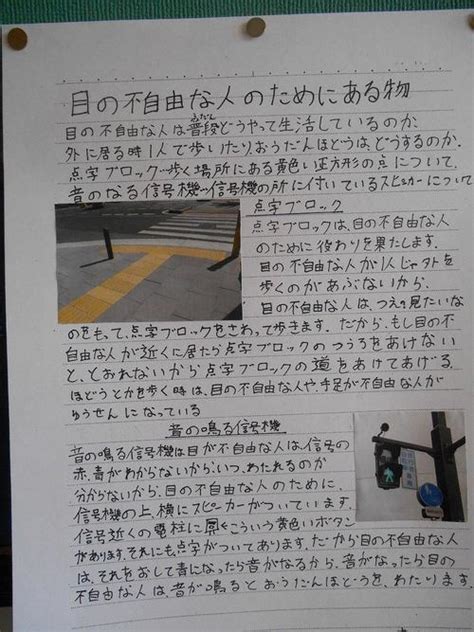 目の不自由な人のためにある物
目の不自由な人は、普段どうやって生活しているのか。
ふだん
外に居る時1人で歩いたり、おうだんほどうは、どうするのか。
点字ブロック…歩く場所にある黄色い正方形の点について。
音のなる信号機…信号機の所に付いているスピーカーについて
点字ブロック
点字ブロックは、目の不自由な人
のために役わりを果たします。
目の不自由な人が1人じゃ外を
歩くのがあぶないから、
目の不自由な人は、つえの見たいな
のをもって、点字ブロックをさわって歩きます。だから、もし目の不
自由な人が近くに居たら点字ブロックのつうろをあけない
と、とおれないから点字ブロックの道をあけてあげる。
ほどうとかを歩く時は、目の不自由な人や、手足が不自由な人が
ゆうせんになっている
音の鳴る信号機
音の鳴る信号機は目が不自由な人は、信号の
赤、青がわからないから、いつ、わたれるのか
分からないから、目の不自由な人のために、
信号機の上、横にスピーカーがついています。
信号近くの電柱に こういう黄色いボタン
があります。それにも点字がついてあります。だから目の不自由な人
は、それをおして青になったら音がなるから、音がなったら目の
不自由な人は、音が鳴るとおうだんほどうを、わたります